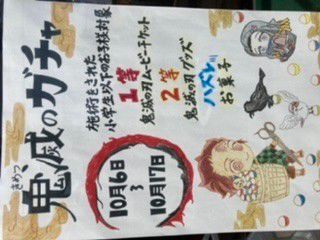 きめつ
鬼滅のガチャ
施術をされた
小学生以下のお子様対象
1等
鬼滅の刃ムービーチケット
2等
鬼滅の刃グッズ
ハズレ
お菓子
10月6日
〜
10月17日